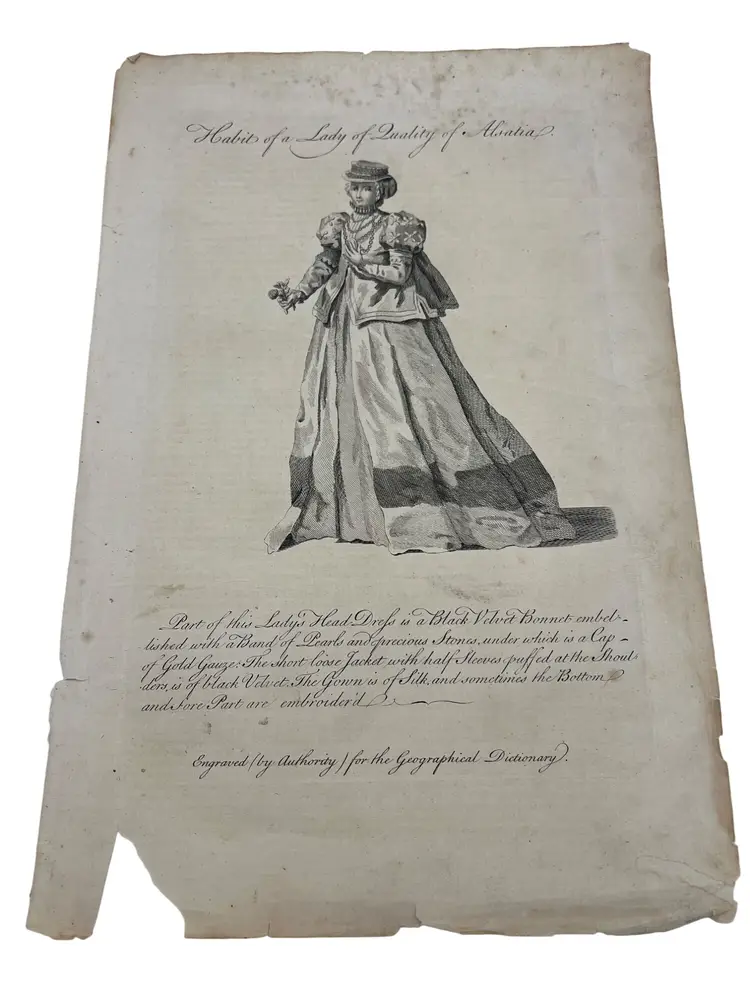 Habit of a Lady of Quality of Alsatia.
Part of this Lady's Head-Dress is a Black Velvet Bonnet embel-
lished with a Band of Pearls and precious Stones, under which is a Cap
of Gold Gauze: The short loose Jacket with half Sleeves puffed at the Shoul-
ders, is of black Velvet. The Gown is of Silk, and sometimes the Bottom
and Fore Part are embroider'd
Engraved (by Authority) for the Geographical Dictionary.